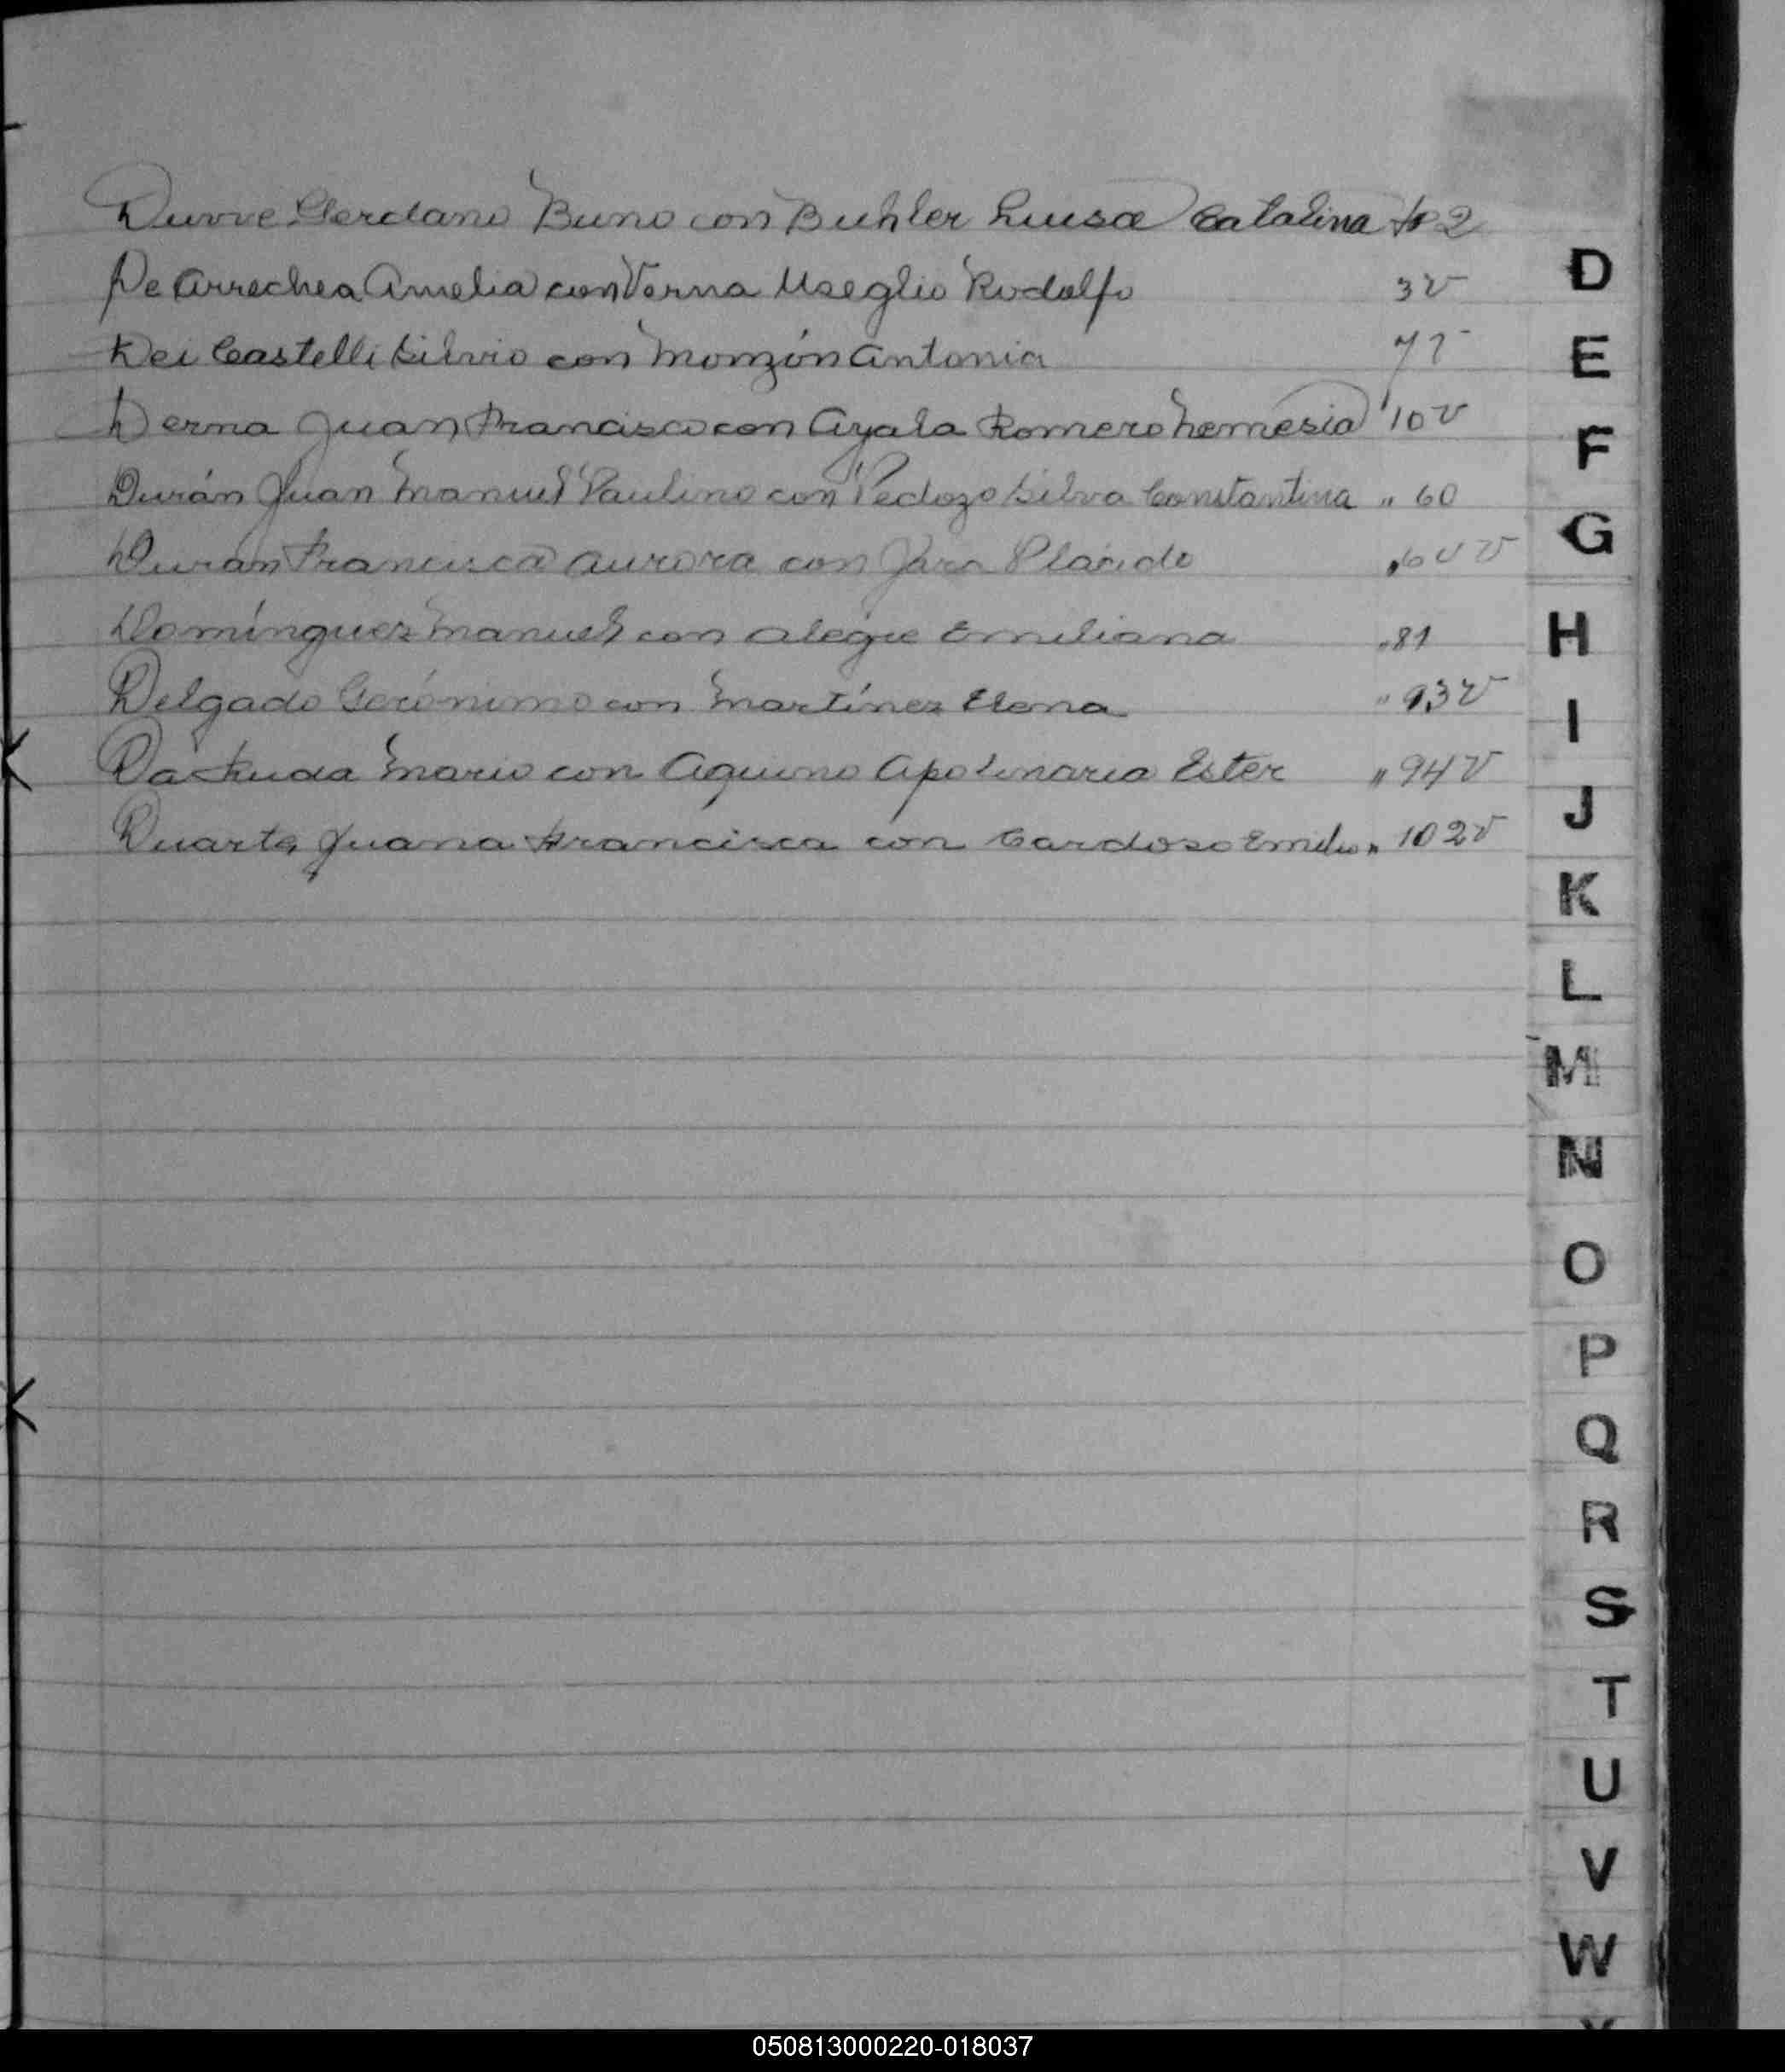 Durre Gerdano Buno con Buhler Luisa Catalina fo 2
De Arrechea Amelia con Verna Useglio Rodolfo 3v
Dei Castelli Silvio con Monzón Antonia
Derna Juan Francisco con Ayala Romero Nemesia 10v
Durán Juan Manuel Paulino con Pedozo Silva Constantina " 60
Duran Francisca Aurora con Jara Plácido
Domínguez Manuel con Alegre Emiliana " 81
Delgado Gerónimo con Martínez Elena " 93v
Da Mario con Aquino Apolinaria Ester " 94v
Duarte Juana Francisca con Cardoso Emilio " 102v
D
E
F
G
H
I
J
K
L
M
N
O
P
Q
R
S
T
U
V
W
050813000220-018037